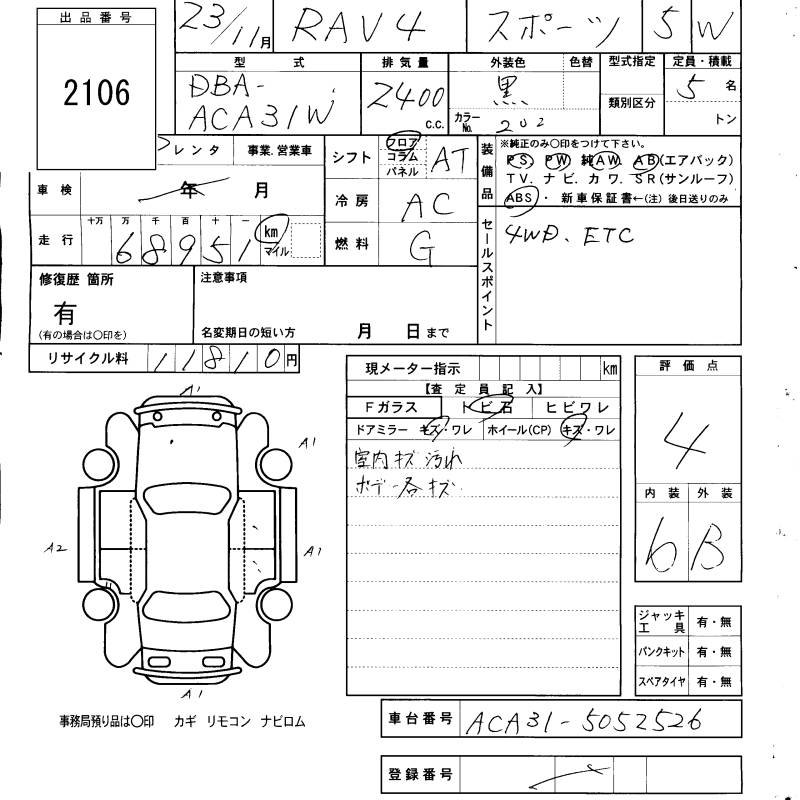 出品番号
2106
23/11月 RAV4 スポーツ 5W
型式 排気量 外装色 色替 型式指定 定員・積載
DBA-ACA31W 2400 c.c. 黒 カラーNo. 202 類別区分 5名 トン
レンタ 事業.営業車 シフト フロア コラム パネル AT
装備品 ※純正のみ○印をつけて下さい。
PS PW 純AW AB(エアバック)
TV. ナビ. カワ. SR(サンルーフ)
ABS ・ 新車保証書←(注) 後日送りのみ
車検 年 月 冷房 AC
走行 十万 万 千 百 十 一
68951 km マイル 燃料 G
セールスポイント 4WD. ETC
修復歴 箇所 注意事項
有
(有の場合は○印を) 名変期日の短い方 月 日まで
リサイクル料 11810円
現メーター指示 km
【査定員記入】
Fガラス トビ石 ヒビワレ
ドアミラー キズ・ワレ ホイール(CP) キズ・ワレ
室内キズ汚れ
ボデー各キズ
評価点
4
内装 外装
6 B
A1
A1
A2 A1
A1
ジャッキ工具 有・無
パンクキット 有・無
スペアタイヤ 有・無
事務局預り品は○印 カギ リモコン ナビロム
車台番号 ACA31-5052526
登録番号